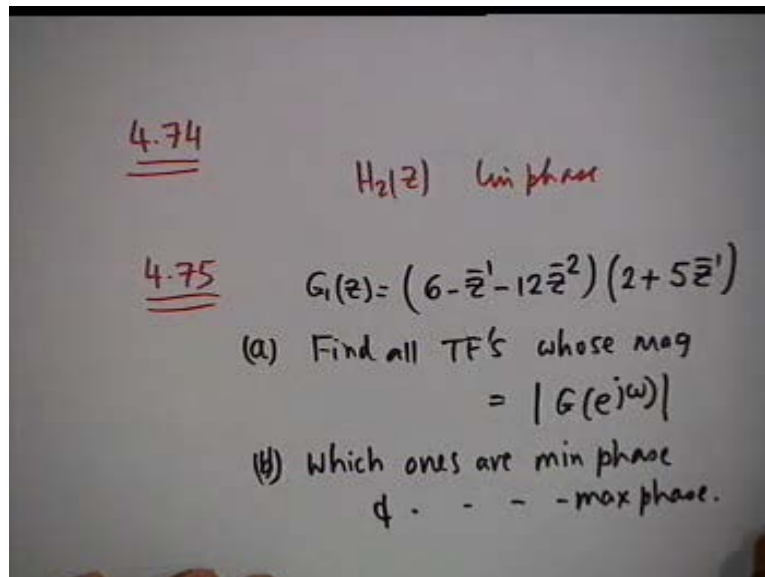 4.74
H₂(z) lin phase
4.75 G₁(z) = (6 - z⁻¹ - 12z⁻²)(2 + 5z⁻¹)
(a) Find all TF's whose mag
= |G(e^jω)|
(b) Which ones are min phase
& . - - - max phase.